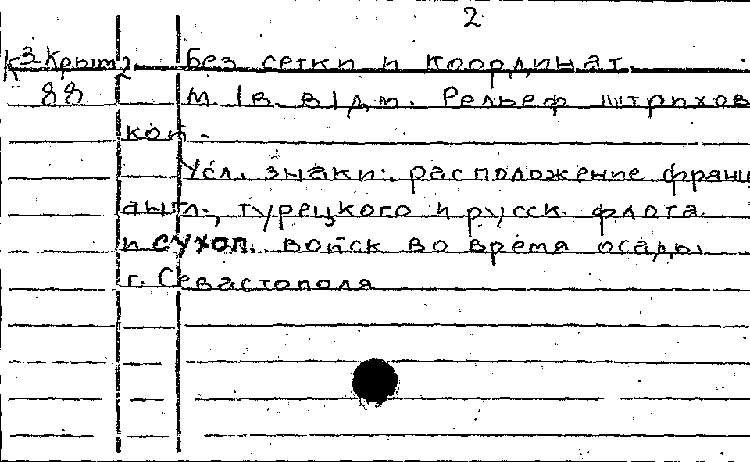 2
К 3-Крым 2 Без сетки и координат.
88 М. 1в. в 1 дм. Рельеф штрихов
кой.
Усл. знаки: расположение франц
англ., турецкого и русск. флота
и сухоп. войск во время осады
г. Севастополя